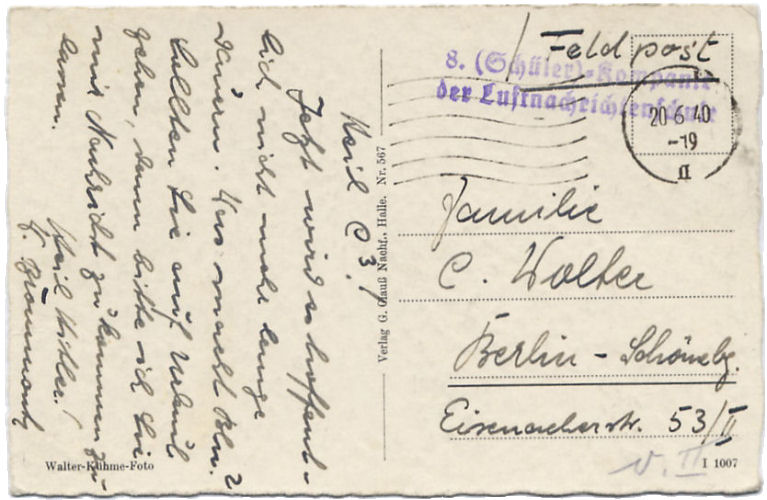 Heil C 3!
Jetzt wird es hoffent-
lich nicht mehr lange
dauern. Was macht Bln.?
Sollten Sie auf Urlaub
gehen, dann bitte ich Sie
mir Nachricht zukommen zu
lassen.
Heil Hitler!
Verlag G. Glauß Nachf., Halle. Nr. 567
Feldpost
8. (Schüler)-Kompanie
der Luftnachrichtenschule
20.6.40
-19
a
Familie
C. Wolter
Berlin - Schönebg.
Eisenacherstr. 53/II
v. II
Walter-Kühme-Foto
I 1007